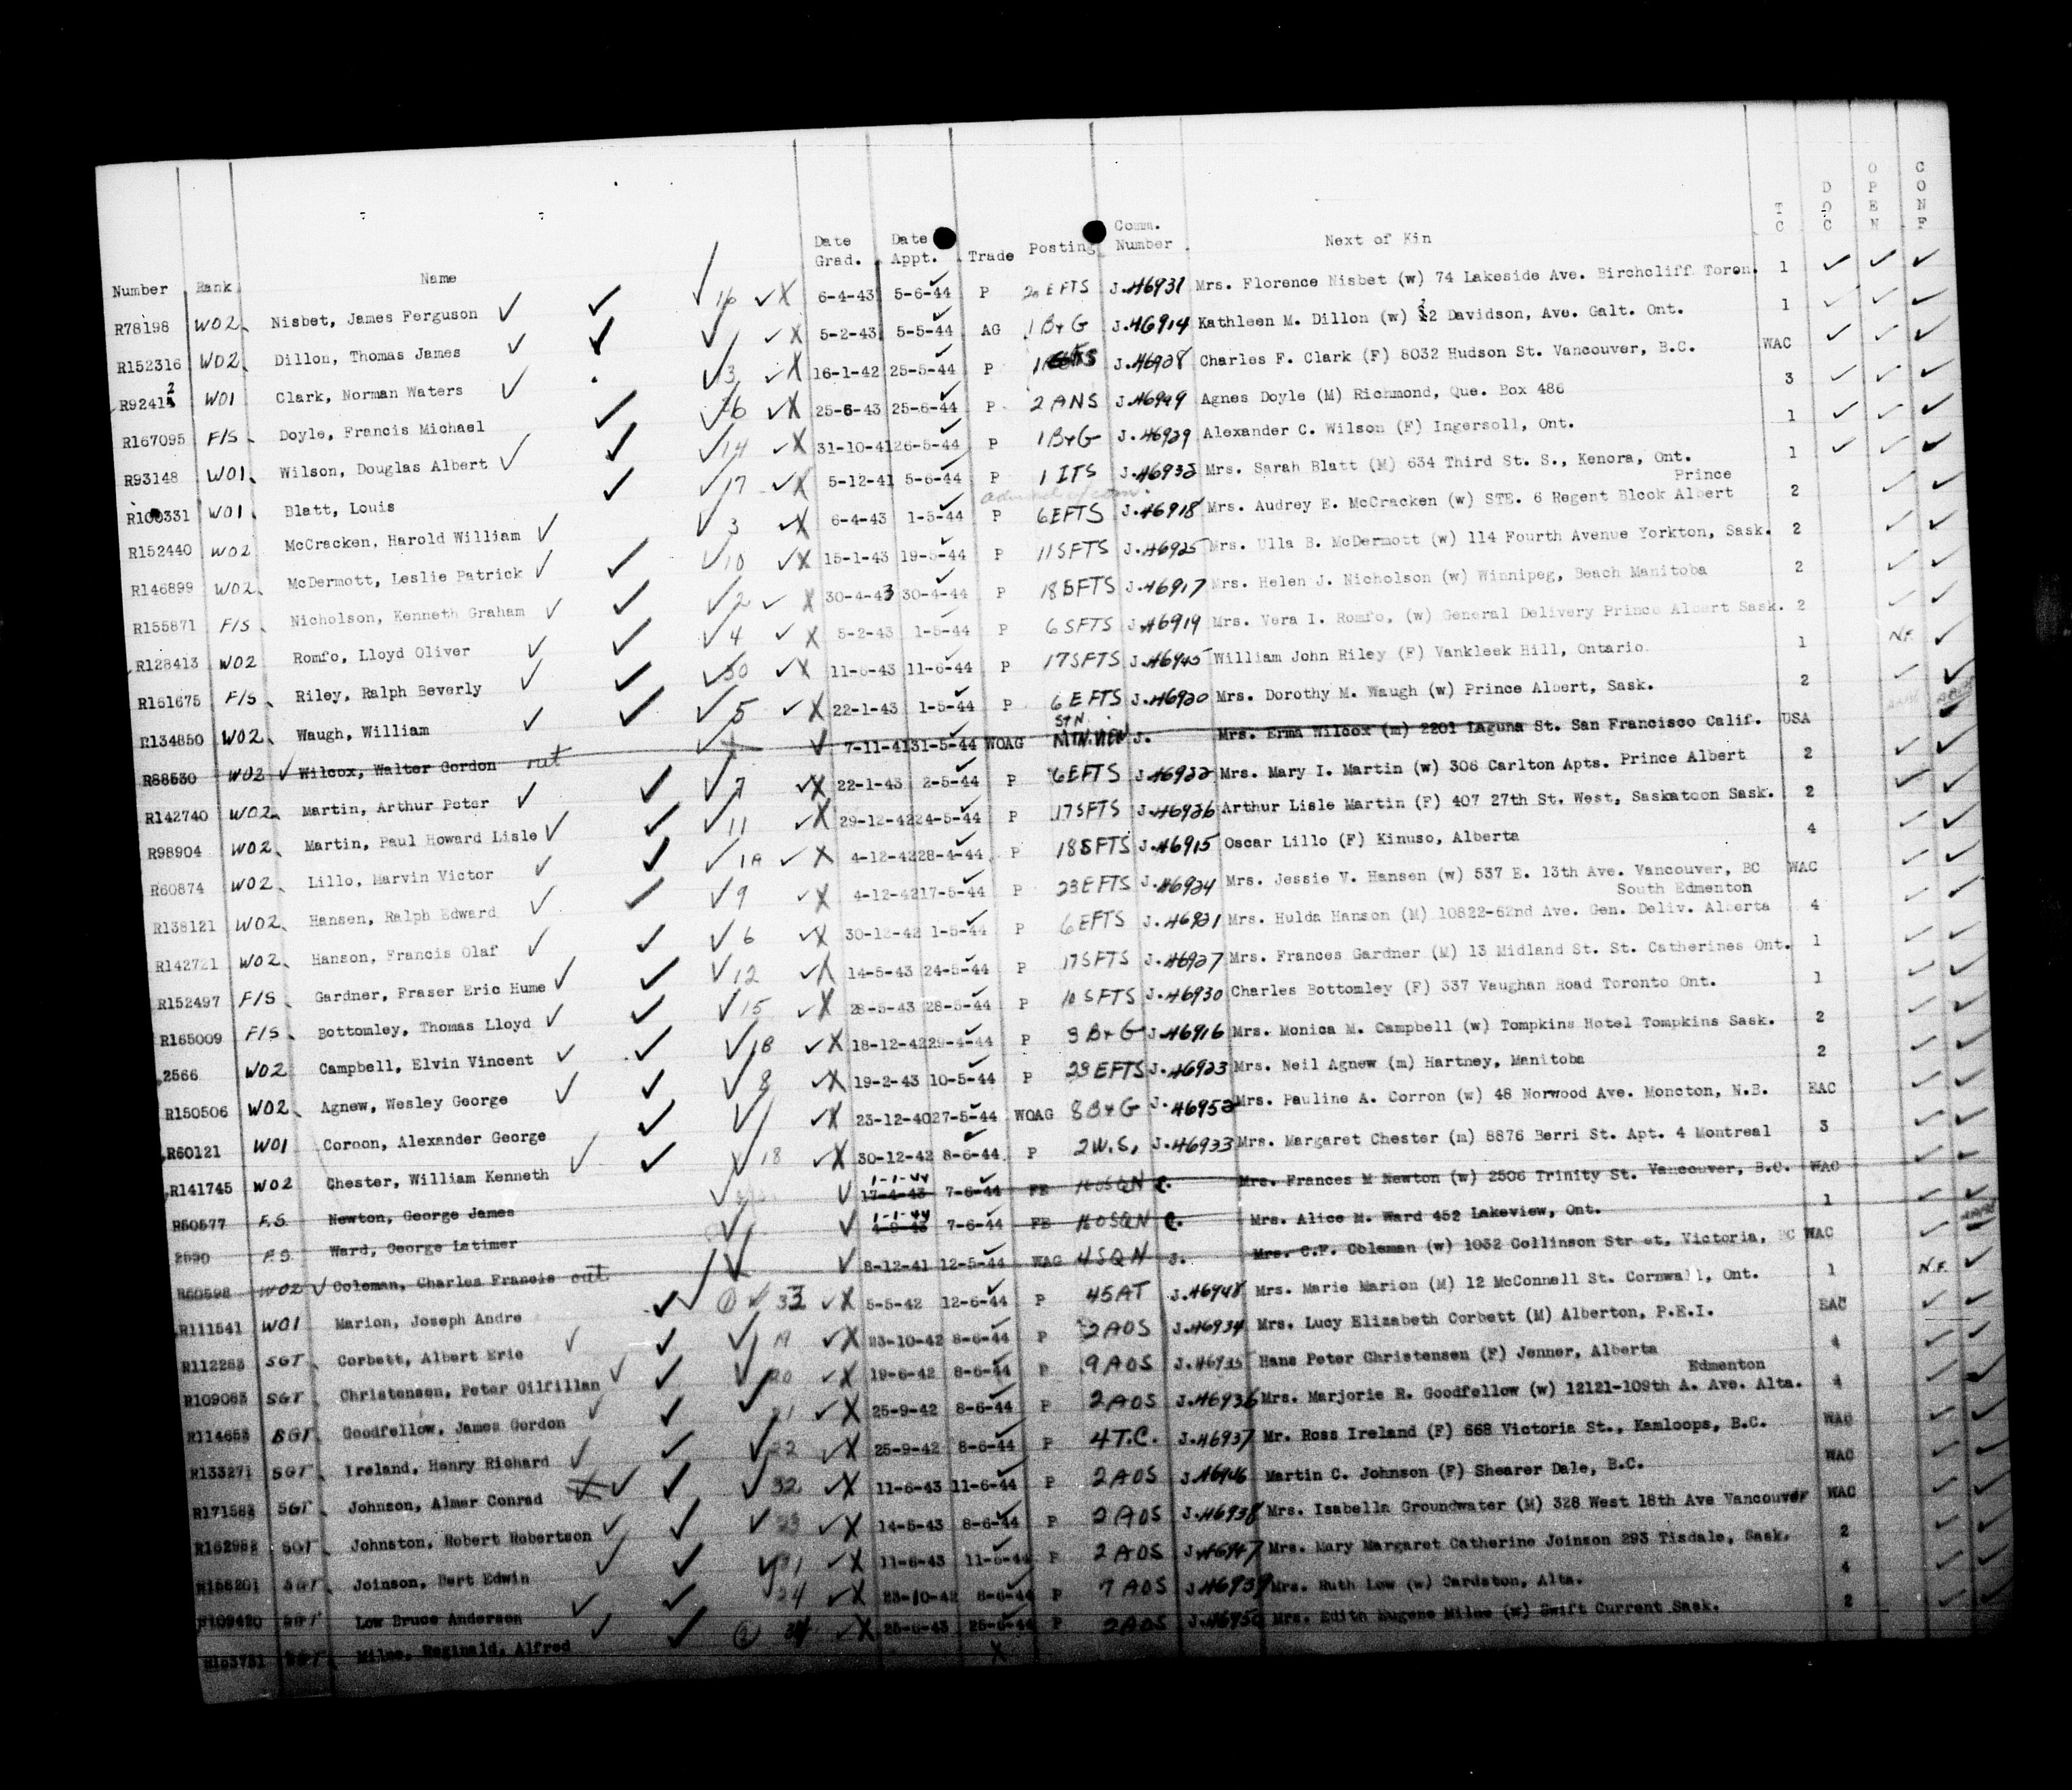 Number Rank Name Date Grad. Date Appt. Trade Posting Comm. Number Next of Kin TC DOC OPEN CONF
R78198 WO2 Nisbet, James Ferguson 16 6-4-43 5-6-44 P EFTS J.46931 Mrs. Florence Nisbet (w) 74 Lakeside Ave. Birchcliff Toron. 1
R152316 WO2 Dillon, Thomas James 5-2-43 5-5-44 AG 1 B+G J.46914 Kathleen M. Dillon (w) 12 Davidson, Ave. Galt. Ont. 1
R92412 WO1 Clark, Norman Waters 13 16-1-42 25-5-44 P 1 J.46928 Charles F. Clark (F) 8032 Hudson St. Vancouver, B.C. WAC
R167095 F/S Doyle, Francis Michael 26 25-6-43 25-6-44 P 2 ANS J.46949 Agnes Doyle (M) Richmond, Que. Box 486 3
R93148 WO1 Wilson, Douglas Albert 14 31-10-41 26-5-44 P 1 B+G J.46929 Alexander C. Wilson (F) Ingersoll, Ont. 1
R100331 WO1 Blatt, Louis 17 5-12-41 5-6-44 P 1 ITS J.46932 Mrs. Sarah Blatt (M) 634 Third St. S., Kenora, Ont. 1
R152440 WO2 McCracken, Harold William 3 6-4-43 1-5-44 P 6 EFTS J.46918 Mrs. Audrey E. McCracken (w) STE. 6 Regent Block Prince Albert 2
R146899 WO2 McDermott, Leslie Patrick 10 15-1-43 19-5-44 P 11 SFTS J.46925 Mrs. Ulla B. McDermott (w) 114 Fourth Avenue Yorkton, Sask. 2
R155871 F/S Nicholson, Kenneth Graham 2 30-4-43 30-4-44 P 18 EFTS J.46917 Mrs. Helen J. Nicholson (w) Winnipeg, Beach Manitoba 2
R128413 WO2 Romfo, Lloyd Oliver 4 5-2-43 1-5-44 P 6 SFTS J.46919 Mrs. Vera I. Romfo, (w) General Delivery Prince Albert Sask. 2
R161675 F/S Riley, Ralph Beverly 30 11-6-43 11-6-44 P 17 SFTS J.46945 William John Riley (F) Vankleek Hill, Ontario. 1 N.F.
R134850 WO2 Waugh, William 5 22-1-43 1-5-44 P 6 EFTS J.46920 Mrs. Dorothy M. Waugh (w) Prince Albert, Sask. 2
R68530 WO2 Wilcox, Walter Gordon out 7-11-41 31-5-44 WOAG STN. MTN. VIEW J. Mrs. Erma Wilcox (m) 2201 Laguna St. San Francisco Calif. USA
R142740 WO2 Martin, Arthur Peter 7 22-1-43 2-5-44 P 6 EFTS J.46922 Mrs. Mary I. Martin (w) 306 Carlton Apts. Prince Albert 2
R98904 WO2 Martin, Paul Howard Lisle 11 29-12-42 24-5-44 P 17 SFTS J.46926 Arthur Lisle Martin (F) 407 27th St. West, Saskatoon Sask. 2
R60874 WO2 Lillo, Marvin Victor 1A 4-12-42 28-4-44 P 18 SFTS J.46915 Oscar Lillo (F) Kinuso, Alberta 4
R138121 WO2 Hansen, Ralph Edward 9 4-12-42 17-5-44 P 23 EFTS J.46924 Mrs. Jessie V. Hansen (w) 537 E. 13th Ave. Vancouver, BC WAC
R142721 WO2 Hanson, Francis Olaf 6 30-12-42 1-5-44 P 6 EFTS J.46921 Mrs. Hulda Hanson (M) 10822-62nd Ave. Gen. Deliv. South Edmonton Alberta 4
R152497 F/S Gardner, Fraser Eric Hume 12 14-5-43 24-5-44 P 17 SFTS J.46927 Mrs. Frances Gardner (M) 13 Midland St. St. Catherines Ont. 1
R165009 F/S Bottomley, Thomas Lloyd 15 28-5-43 28-5-44 P 10 SFTS J.46930 Charles Bottomley (F) 337 Vaughan Road Toronto Ont. 1
2566 WO2 Campbell, Elvin Vincent 1B 18-12-42 29-4-44 P 3 B+G J.46916 Mrs. Monica M. Campbell (w) Tompkins Hotel Tompkins Sask. 2
R150506 WO2 Agnew, Wesley George 8 19-2-43 10-5-44 P 23 EFTS J.46923 Mrs. Neil Agnew (m) Hartney, Manitoba 2
R60121 WO1 Corron, Alexander George 23-12-40 27-5-44 WOAG 8 B+G J.46952 Mrs. Pauline A. Corron (w) 48 Norwood Ave. Moncton, N.B. EAC
R141745 WO2 Chester, William Kenneth 18 30-12-42 8-6-44 P 2 W.S. J.46933 Mrs. Margaret Chester (m) 8876 Berri St. Apt. 4 Montreal 3
R50577 F.S. Newton, George James 1-1-44 17-4-43 7-6-44 FE SQN C. Mrs. Frances M Newton (w) 2506 Trinity St. Vancouver, B.C. WAC
2590 F.S. Ward, George Latimer 1-1-44 7-6-44 FE SQN C. Mrs. Alice M. Ward 452 Lakeview, Ont. 1
R60598 WO2 Coleman, Charles Francis out 8-12-41 12-5-44 WAG 4 SQN J. Mrs. C.F. Coleman (w) 1032 Collinson Street, Victoria, BC WAC
R111541 WO1 Marion, Joseph Andre 33 5-5-42 12-6-44 P 45 AT J.46948 Mrs. Marie Marion (M) 12 McConnell St. Cornwall, Ont. 1 N.F.
R112283 SGT Corbett, Albert Eric 19 23-10-42 8-6-44 P 2 AOS J.46934 Mrs. Lucy Elizabeth Corbett (M) Alberton, P.E.I. EAC
R109063 SGT Christensen, Peter Gilfillan 20 19-6-42 8-6-44 P 9 AOS J.46935 Hans Peter Christensen (F) Jenner, Alberta 4
R114653 SGT Goodfellow, James Gordon 21 25-9-42 8-6-44 P 2 AOS J.46936 Mrs. Marjorie R. Goodfellow (w) 12121-109th A. Ave. Edmonton Alta. 4
R133271 SGT Ireland, Henry Richard 22 25-9-42 8-6-44 P 4 T.C. J.46937 Mr. Ross Ireland (F) 668 Victoria St., Kamloops, B.C. WAC
SGT Johnson, Almer Conrad 32 11-6-43 11-6-44 P 2 AOS J.46946 Martin C. Johnson (F) Shearer Dale, B.C. WAC
SGT Johnston, Robert Robertson 23 14-5-43 8-6-44 P 2 AOS J.46938 Mrs. Isabella Groundwater (M) 328 West 18th Ave Vancouver WAC
R158201 SGT Joinson, Bert Edwin 31 11-6-43 11-6-44 P 2 AOS J.46947 Mrs. Mary Margaret Catherine Joinson 293 Tisdale, Sask. 2
SGT Low Bruce Anderson 24 23-10-42 8-6-44 P 7 AOS J.46939 Mrs. Ruth Low (w) Cardston, Alta. 4
SGT Milne, Reginald, Alfred 34 25-6-43 25-6-44 P 2 AOS J.46950 Mrs. Edith Eugene Milne (w) Swift Current Sask. 2